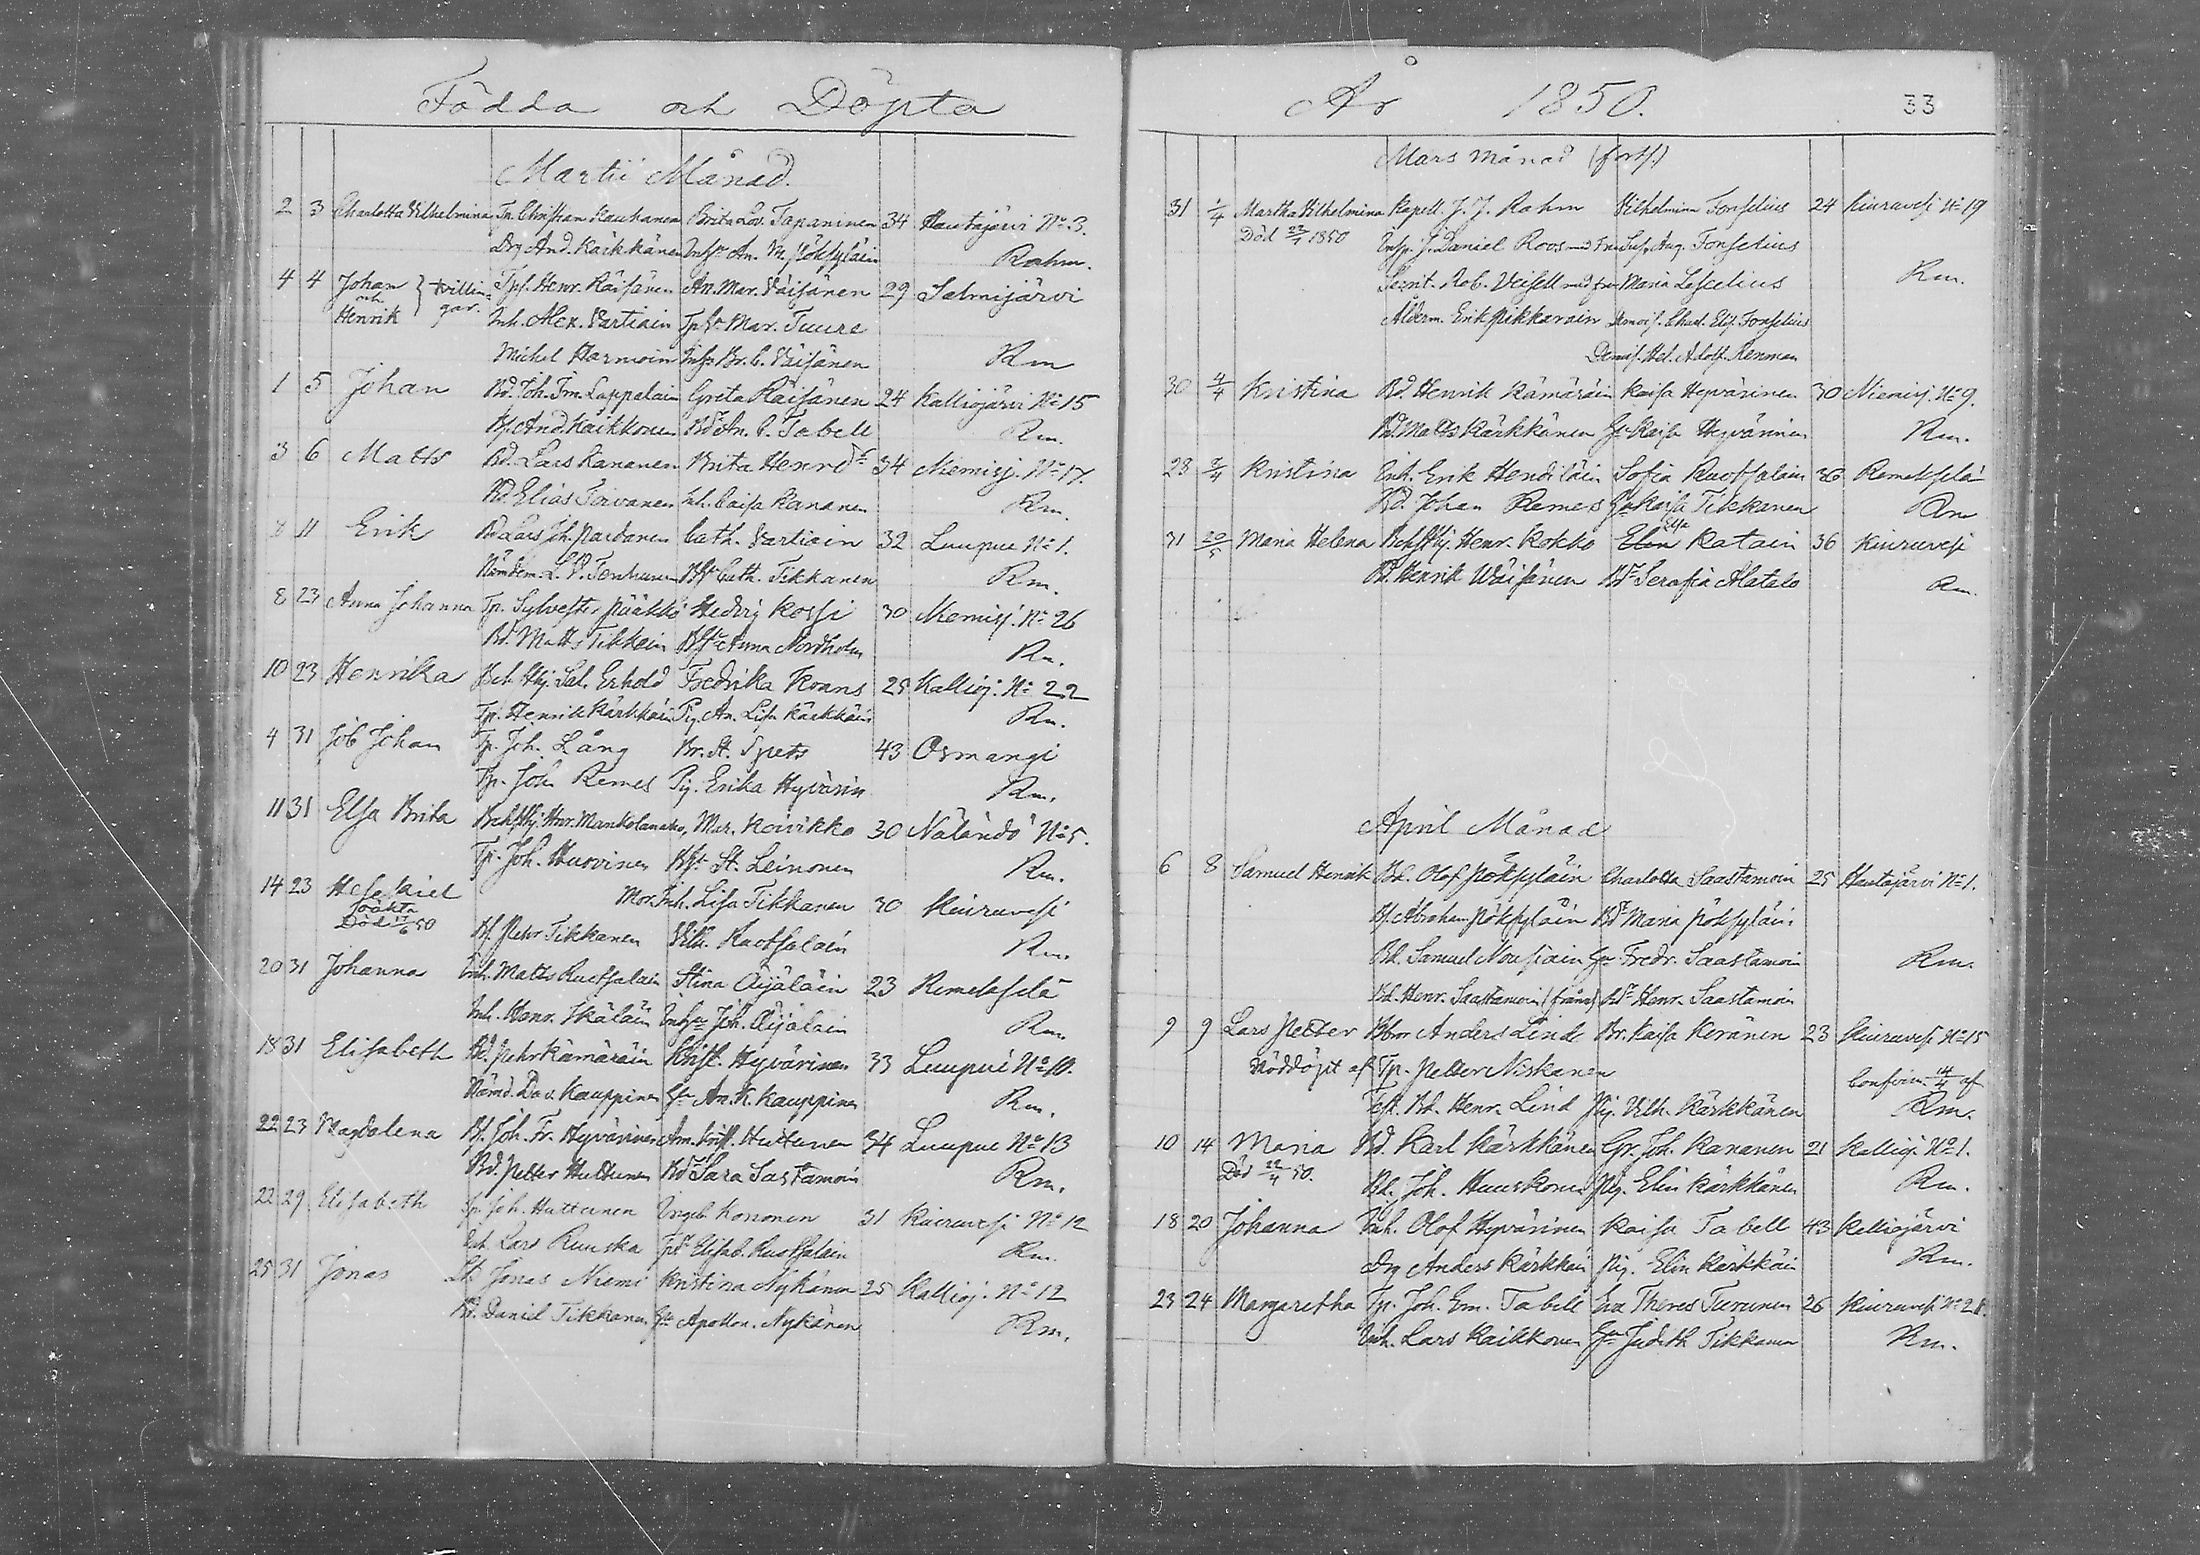 Födda och Döpta
Martii Månad.
2 3 Charlotta Wilhelmina Tp. Christian Kauhanen Brita Lov. Tapaninen 34 Hautajärvi No 3.
Drg And. Kärkkänen Inhsr An. M. Pöksyläin Rahm.
4 4 Johan Tpf. Henr. Räisänen An. Mar. Väisänen 29 Salmijärvi
och
Henrik } tvillingar. Inh. Alex. Vartiain Mar. Tuure
Michel Harmoin Br. C. Väisänen Rm
1 5 Johan Bd. Joh. Im. Lappalain Greta Räisänen 24 Kalliojärvi No 15
And Kaikkonen An. C. Tabell Rm.
3 6 Matts Bd. Lars Kananen Brita Henrdr 34 Niemisj. No 17.
Bd Elias Toivanen Inh. Caisa Kananen Rm.
8 11 Erik Bd Lars Joh. Pardanen Cath. Vartiain 32 Luupue No 1.
Nämdem. L. P. Tenhunen Cath. Tikkanen Rm.
8 23 Anna Johanna Tp. Sylvester Pääkkö Hedvig Kossi 30 Niemisj. No 26
Bd. Matts Tikkain Anna Nordholm Rm.
10 23 Henrika Sal. Erhold Fredrika Krans 25 Kallioj. No 22
Tp. Henrik Kärkkäin Pig. An. Lisa Kärkkäin Rm.
4 31 Job Johan Tp. Joh. Lång Br. St. Spets 43 Osmangi
Tp. Joh. Remes Pig. Erika Hyvärin Rm.
11 31 Elsa Brita Henr. Mankolanaho, Mar. Koivikko 30 Näländö No 5.
Tp. Joh. Huovinen St. Leinonen Rm.
14 23 Hesekiel Mor. Inh. Lisa Tikkanen 30 Kiuruvesi
oäkta
Död 50 Bf. Pehr Tikkanen Vilh. Ruotsalain Rm.
20 31 Johanna Inh. Matts Ruotsalain Stina Äijäläin 23 Remekselä
Inh. Henr. Ikäläin Joh. Äijäläin Rm
18 31 Elisabeth Bd. Pehr Kämäräin Krist. Hyvärinen 33 Luupue No 10.
Nämd. Dav. Kauppinen An. K. Kauppinen Rm.
22 23 Magdalena Bf. Joh. Fr. Hyvärinen An. Krist. Huttunen 34 Luupue No 13
Bd. Petter Huttunen Sara Sastamoin Rm.
22 29 Elisabeth Tp. Joh. Huttunen Ingeb. Kononen 31 Kiuruvesi No 12
Inh. Lars Ruuska Elisab. Ruotsalain Rm.
25 31 Jonas Jonas Niemi Kristina Nykänen 25 Kallioj. No 12
Bd. Daniel Tikkanen Apollon. Nykänen Rm.
År 1850. 33
Mars månad (forts.)
31 1/4 Martha Wilhelmina Kapell. J. J. Rahm Vilhelmina Fonselius 24 Kiuruvesi No 19
Död 1850 Insp. J. Daniel Roos med Fru Aug. Fonselius
Rob. Veisell med fru Maria Lescelius Rm.
Ålderm. Erik Pikkarain Demois. Charl. Elis. Fonselius
Demis. Hel. Adolf. Renman
30 4/4 Kristina Bd. Henrik Kämäräin Kaisa Hyvärinen 30 Niemisj. No 9.
Bd. Matts Kärkkänen Kaisa Hyvärinen Rm.
28 7/4 Kristina Inh. Erik Hendiläin Sofia Ruotsalain 36 Remekselä
Bd. Johan Remes Kaisa Tikkanen Rm
31 20/5 Maria Helena Henr. Kokko Elin Elsa Katain 36 Kiuruvesi
Bd. Henrik Wäisänen Serafia Alatalo Rm.
April Månad
6 8 Samuel Henrik Bd. Olof Pöksyläin Charlotta Saastamoin 25 Hautajärvi No 1.
Bf. Abraham Pöksyläin Maria Pöksyläin
Bd. Samuel Nousiain Fredr. Saastamoin Rm.
Bd. Henr. Saastamoin (från) Henr. Saastamoin
9 9 Lars Petter Anders Lind Br. Kaisa Keränen 23 Kiuruvesi No 15
Nöddöpt af Tp. Petter Niskanen Confirm. 14/4 af
Test. Bd. Henr. Lind Pig. Vilh. Kärkkänen Rm.
10 14 Maria Bd. Karl Kärkkänen Gr. Joh. Kananen 21 Kallioj. No 1.
Död 22/4 50. Bd. Joh. Huuskonen Pig. Elin Kärkkänen Rm.
18 20 Johanna Inh. Olof Hyvärinen Kaisa Tabell 43 Kalliojärvi
Drg Anders Kärkkäin Pig. Elin Kärkkäin Rm.
23 24 Margaretha Tp. Joh. Em. Tabell Eva Theres Turunen 26 Kiuruvesi No 28.
Inh. Lars Kaikkonen Judith Tikkanen Rm.